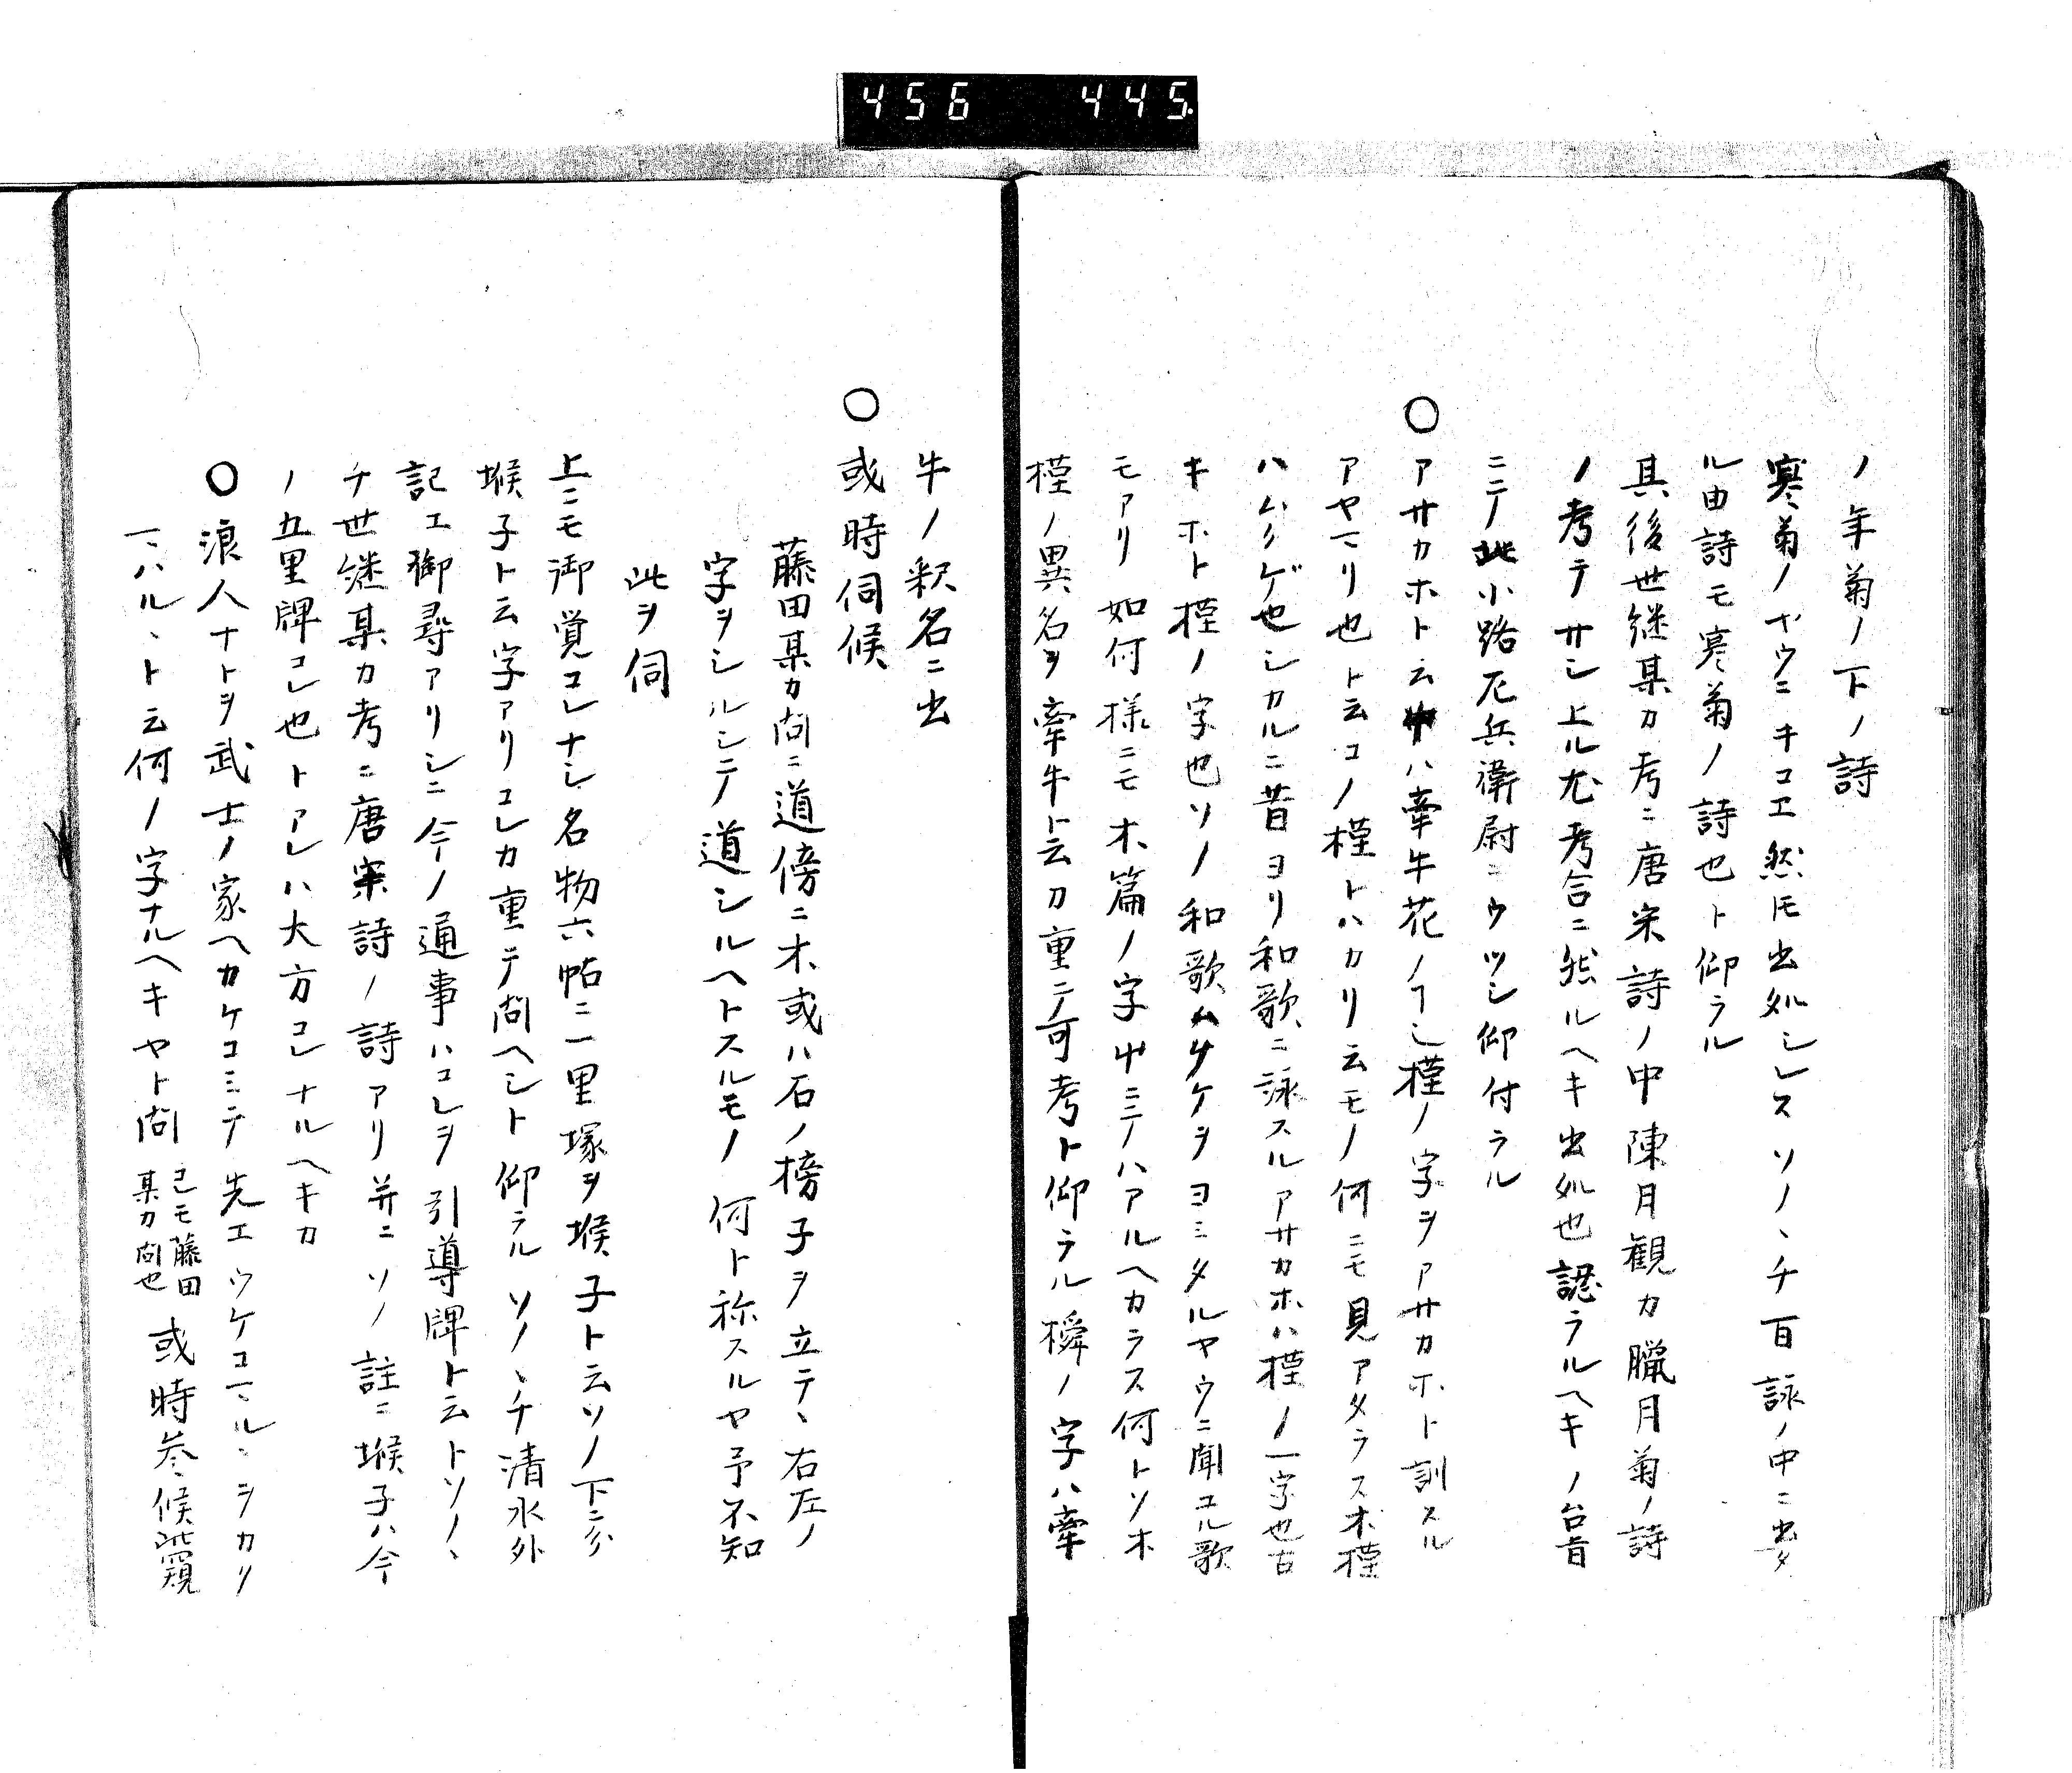 456 445.
ノ年菊ノ下ノ詩
寒菊ノヤウニキコエ然𪜈出処シレスソノヽチ百詠ノ中ニ出タ
ル由詩モ寒菊ノ詩也ト仰ラル
其後世継某カ考ニ唐宋詩ノ中陳月観カ臘月菊ノ詩
ノ考テサシ上ル尤考合ニ然ルヘキ出処也認ラルヘキノ台旨
ニテ此小路左兵衛尉ニウツシ仰付ラル
〇アサカホト云ハ牽牛花ノヿ也槿ノ字ヲアサカホト訓スル
アヤマリ也ト云コノ槿トハカリ云モノ何ニモ見アタラス木槿
ハムクゲ也シカルニ昔ヨリ和歌ニ詠スルアサカホハ槿ノ一字也古
キホト槿ノ字也ソノ和歌ムクケヲヨミタルヤウニ聞ユル歌
モアリ如何様ニモ木篇ノ字サニテハアルヘカラス何トソホ
槿ノ異名ヲ牽牛ト云カ重テ可考ト仰ラル橓ノ字ハ牽
牛ノ釈名ニ出
〇或時伺候
藤田某カ問ニ道傍ニ木或ハ石ノ榜子ヲ立テヽ右左ノ
字ヲシルシテ道シルヘトスルモノ何ト称スルヤ予不知
此ヲ伺
上ニモ御覚コレナシ名物六帖ニ一里塚ヲ堠子ト云ソノ下ニ分
堠子ト云字アリコレカ重テ問ヘシト仰ラルソノヽチ清水外
記エ御尋アリシニ今ノ通事ハコレヲ引導牌ト云トソノヽ
チ世継某カ考ニ唐宋詩ノ詩アリ并ニソノ註ニ堠子ハ今
ノ五里牌コレ也トアレハ大方コレナルヘキカ
〇浪人ナトヲ武士ノ家ヘカケコミテ先エウケコマルヽヲカリ
マハルヽト云何ノ字ナルヘキヤト問 コレモ藤田某カ問也 或時参候此窺